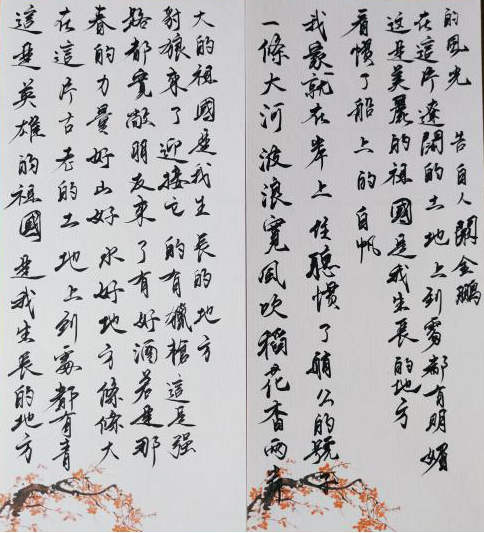 一條大河波浪寬風吹稻花香兩岸
我家就在岸上住聽慣了艄公的號子
看慣了船上的白帆
这是美麗的祖國是我生長的地方
在這片遼闊的土地上到處都有明媚
的風光 金鵬
這是英雄的祖國是我生長的地方
在這片古老的土地上到處都有青
春的力量好山好水好地方條條大
路都寬敞朋友來了有好酒若是那
豺狼來了迎接它的有獵槍這是强
大的祖國是我生長的地方